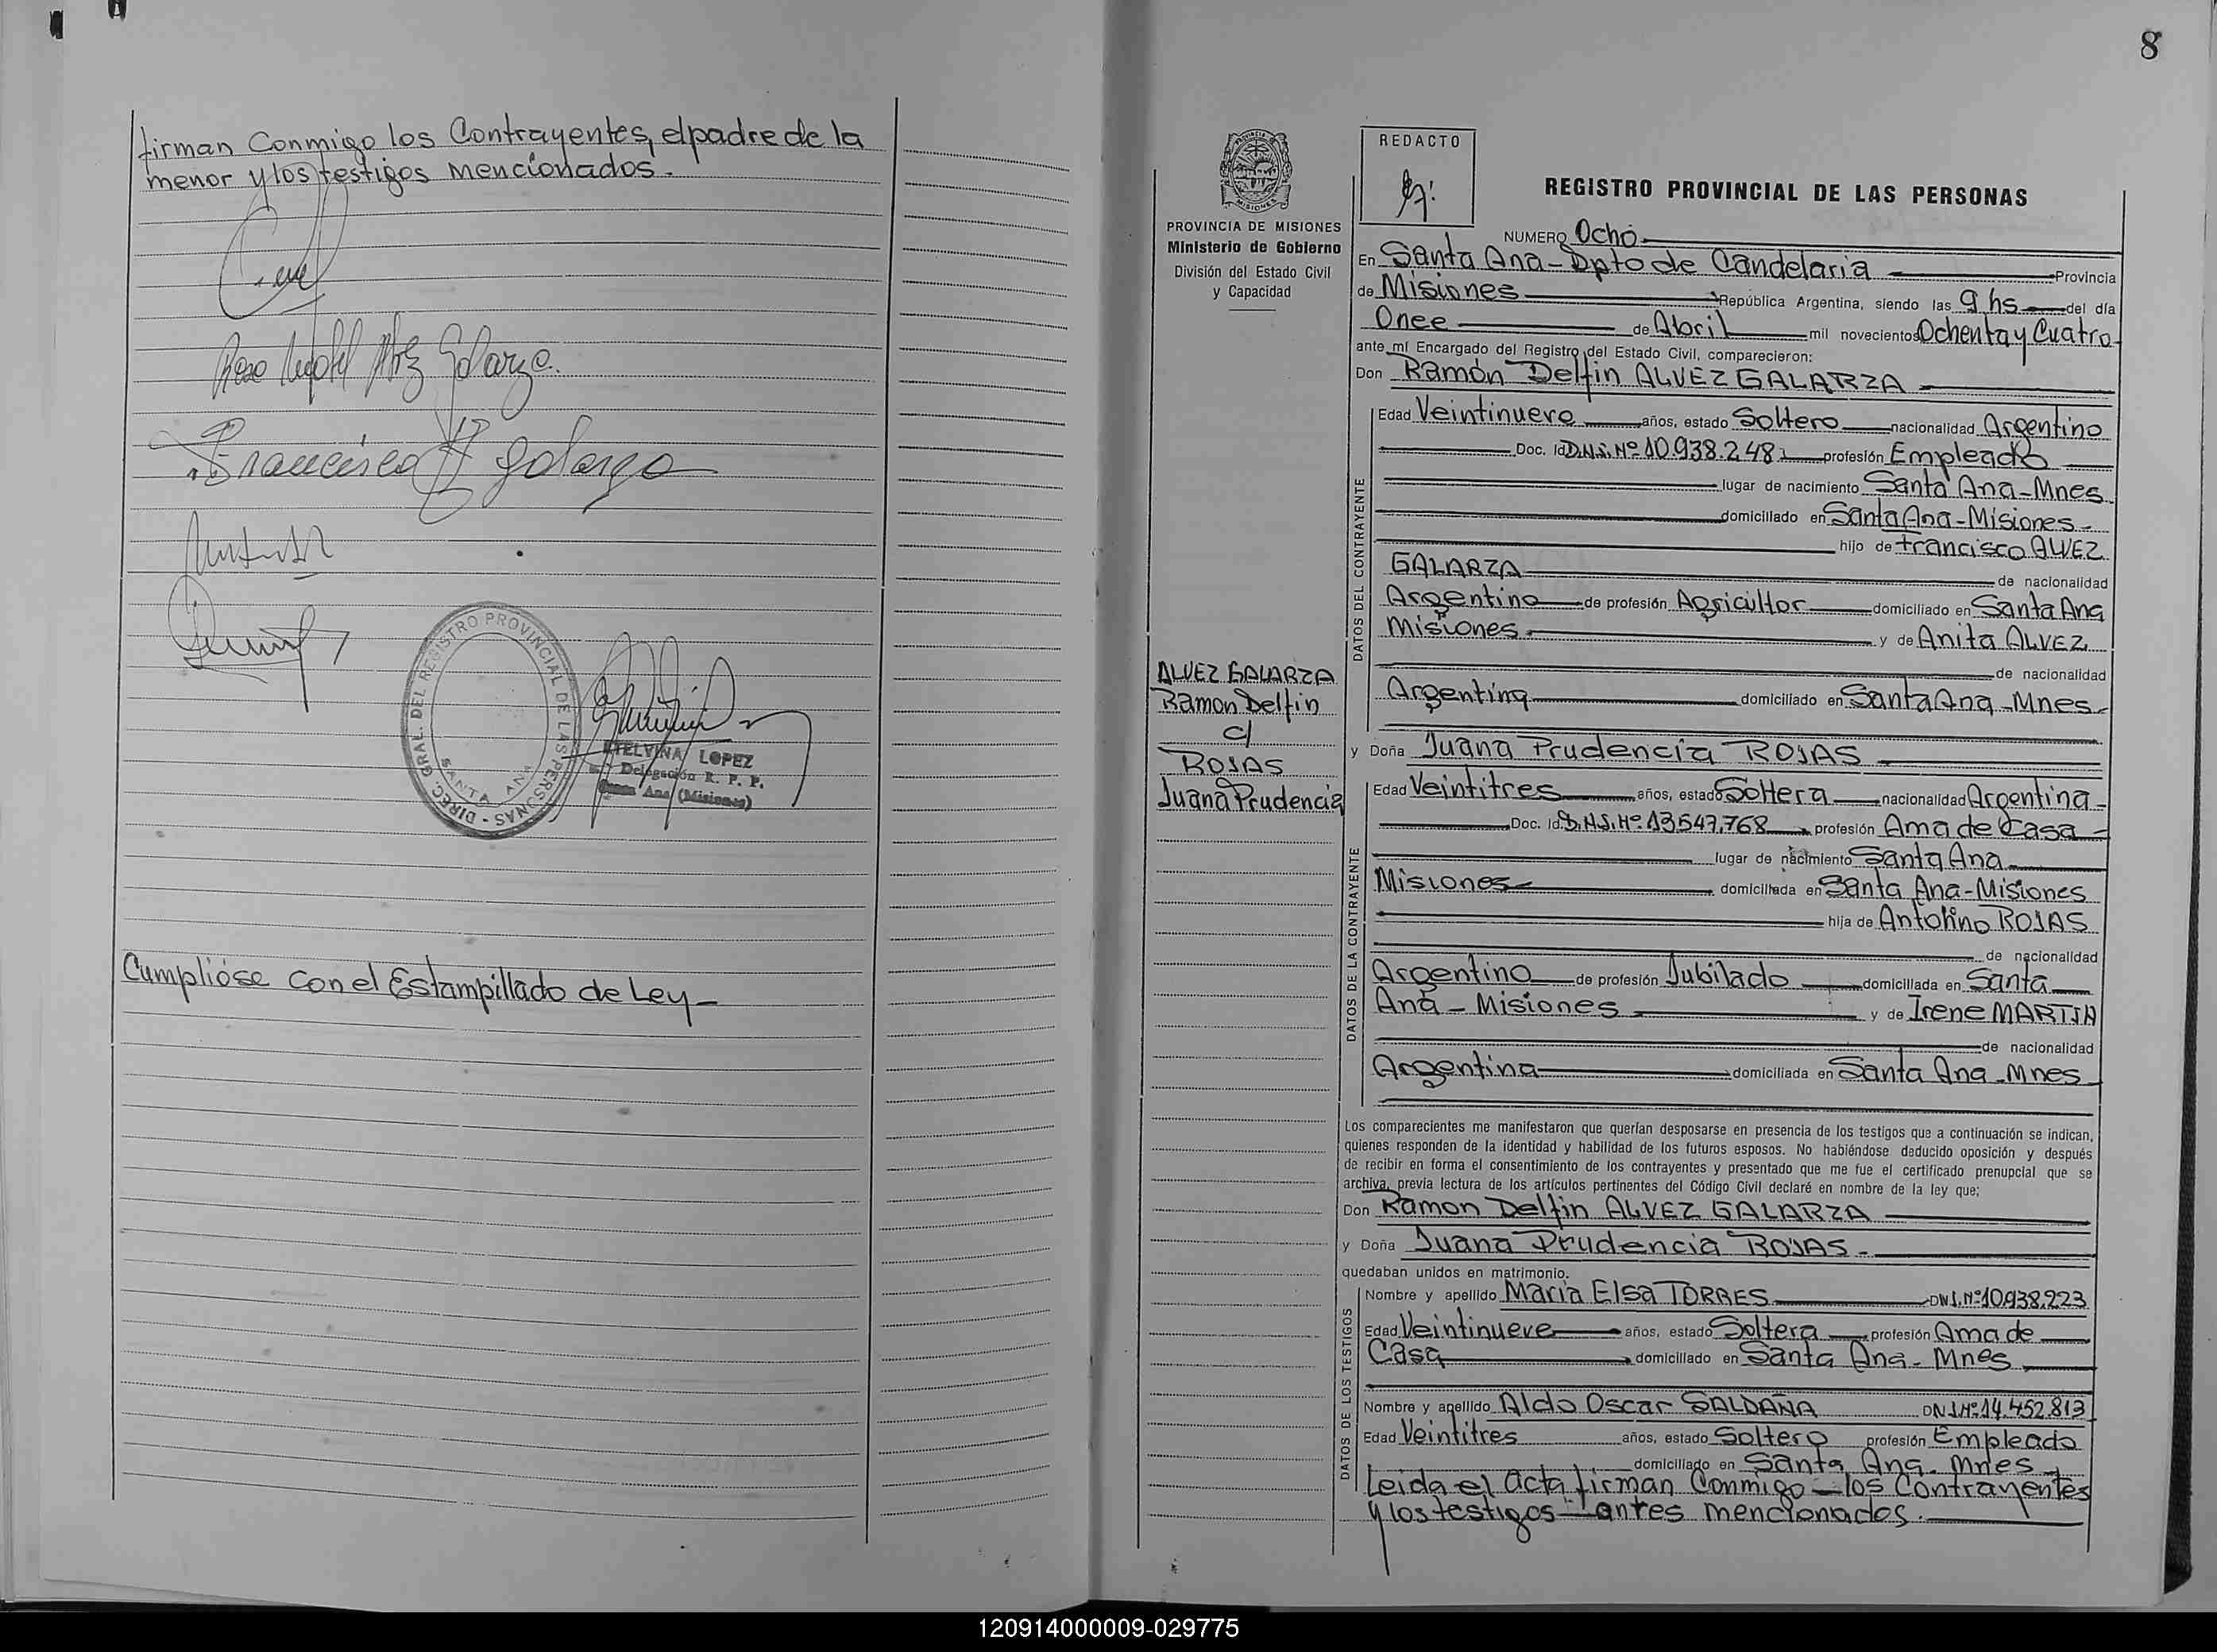 firman Conmigo los Contrayentes, el padre de la
menor y los testigos mencionados.
Francisco Galarza
DIREC. GRAL. DEL REGISTRO PROVINCIAL DE LAS PERSONAS - SANTA ANA
ETELVINA LOPEZ
Delegación R. P. P.
Santa Ana (Misiones)
Cumplióse con el Estampillado de Ley
8
PROVINCIA DE MISIONES
Ministerio de Gobierno
División del Estado Civil
y Capacidad
ALVEZ GALARZA
Ramon Delfin
c/
ROJAS
Juana Prudencia
REDACTO
REGISTRO PROVINCIAL DE LAS PERSONAS
NUMERO Ocho
En Santa Ana - Dpto de Candelaria Provincia
de Misiones República Argentina, siendo las 9 hs del día
Once de Abril mil novecientos Ochenta y Cuatro
ante mí Encargado del Registro del Estado Civil, comparecieron:
Don Ramón Delfin ALVEZ GALARZA
DATOS DEL CONTRAYENTE
Edad Veintinueve años, estado Soltero nacionalidad Argentino
Doc. Id. D.N.I. Nº 10.938.248 profesión Empleado
lugar de nacimiento Santa Ana - Mnes
domiciliado en Santa Ana - Misiones
hijo de Francisco ALVEZ
GALARZA de nacionalidad
Argentino de profesión Agricultor domiciliado en Santa Ana
Misiones y de Anita ALVEZ
de nacionalidad
Argentina domiciliado en Santa Ana - Mnes
y Doña Juana Prudencia ROJAS
DATOS DE LA CONTRAYENTE
Edad Veintitres años, estado Soltera nacionalidad Argentina
Doc. Id. D.N.I. Nº 13.547.768 profesión Ama de Casa
lugar de nacimiento Santa Ana
Misiones domiciliada en Santa Ana - Misiones
hija de Antolino ROJAS
de nacionalidad
Argentino de profesión Jubilado domiciliada en Santa
Ana - Misiones y de Irene MARTIN
de nacionalidad
Argentina domiciliada en Santa Ana - Mnes
Los comparecientes me manifestaron que querían desposarse en presencia de los testigos que a continuación se indican,
quienes responden de la identidad y habilidad de los futuros esposos. No habiéndose deducido oposición y después
de recibir en forma el consentimiento de los contrayentes y presentado que me fue el certificado prenupcial que se
archiva, previa lectura de los artículos pertinentes del Código Civil declaré en nombre de la ley que;
Don Ramon Delfin ALVEZ GALARZA
y Doña Juana Prudencia ROJAS
quedaban unidos en matrimonio.
DATOS DE LOS TESTIGOS
Nombre y apellido Maria Elsa TORRES DNI. Nº 10.938.223
Edad Veintinueve años, estado Soltera profesión Ama de
Casa domiciliado en Santa Ana - Mnes
Nombre y apellido Aldo Oscar SALDAÑA DNI. Nº 14.452.813
Edad Veintitres años, estado Soltero profesión Empleado
domiciliado en Santa Ana - Mnes
Leida el Acta firman Conmigo los Contrayentes
y los testigos antes mencionados.
120914000009-029775